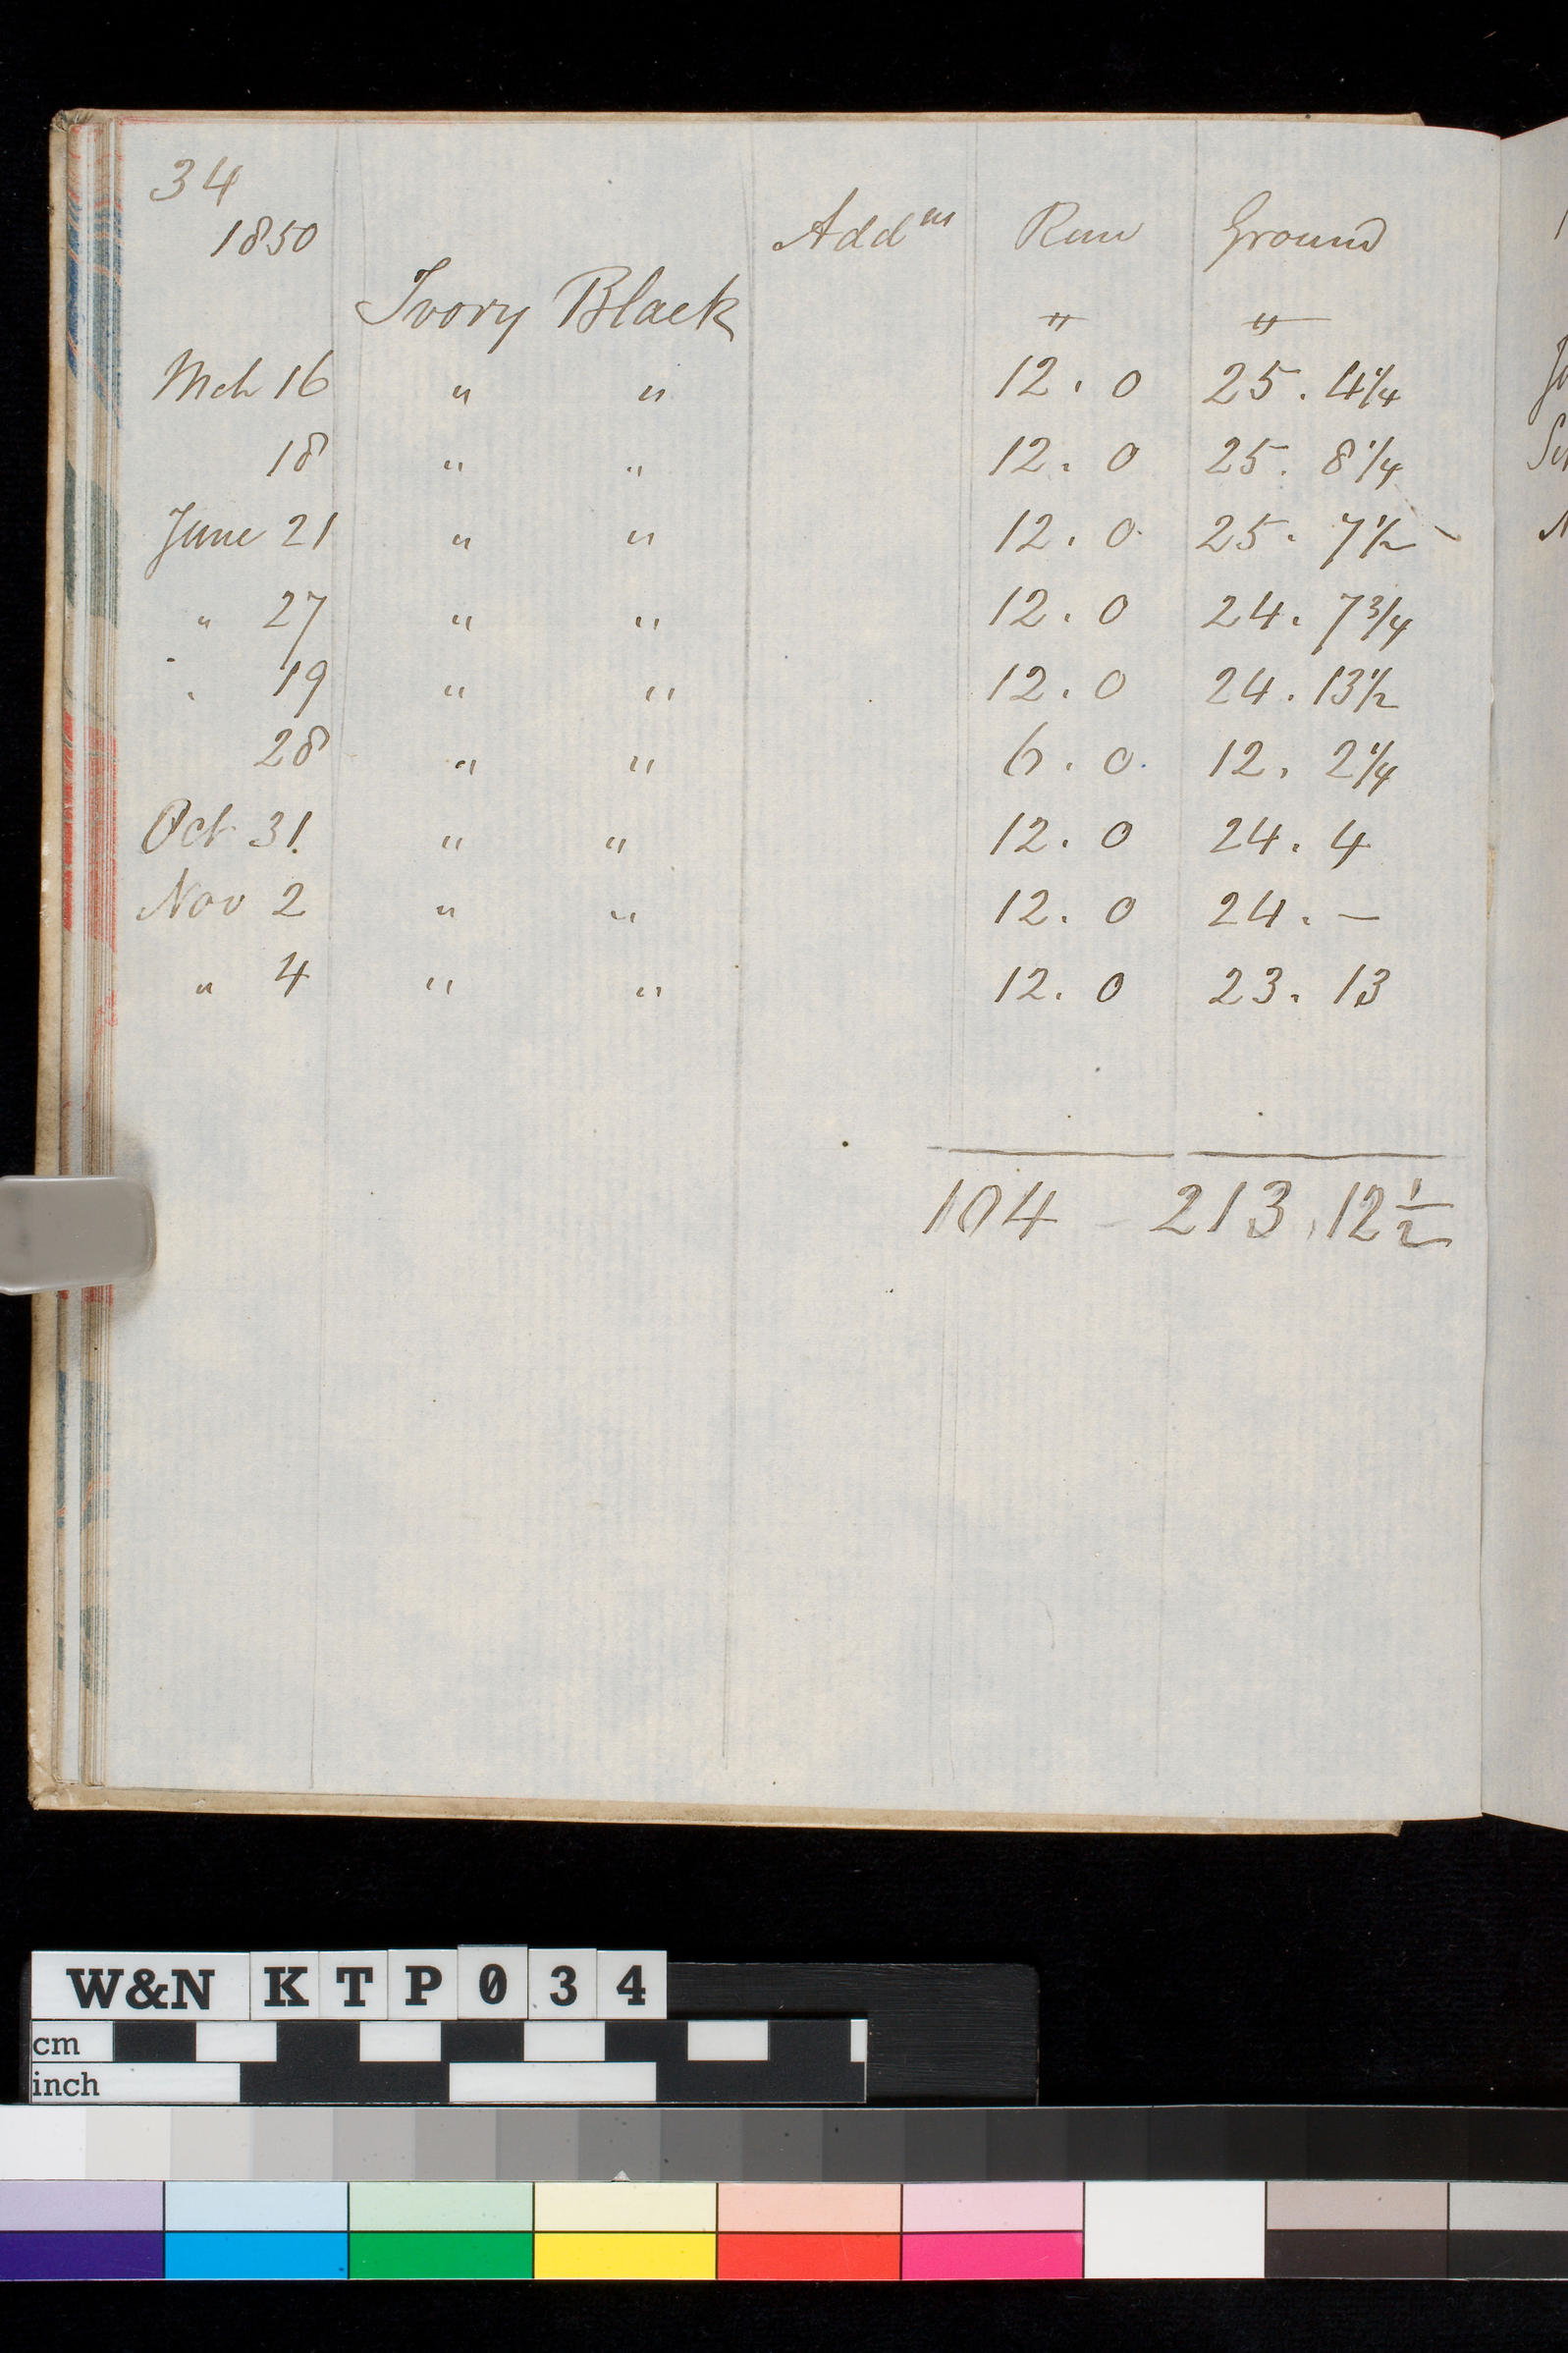 34
1850 Add ns Raw Ground
Ivory Black " "
Mch 16 " " 12. 0 25. 4 1/4
18 " " 12. 0 25. 8 1/4
June 21 " " 12. 0. 25. 7 1/2
" 27 " " 12. 0 24. 7 3/4
" 19 " " 12. 0 24. 13 1/2
28 " " 6. 0. 12. 2 1/4
Oct 31. " " 12. 0 24. 4
Nov 2 " " 12. 0 24. —
" 4 " " 12. 0 23. 13
104 213. 12 1/2
W&N K T P 0 3 4
cm
inch